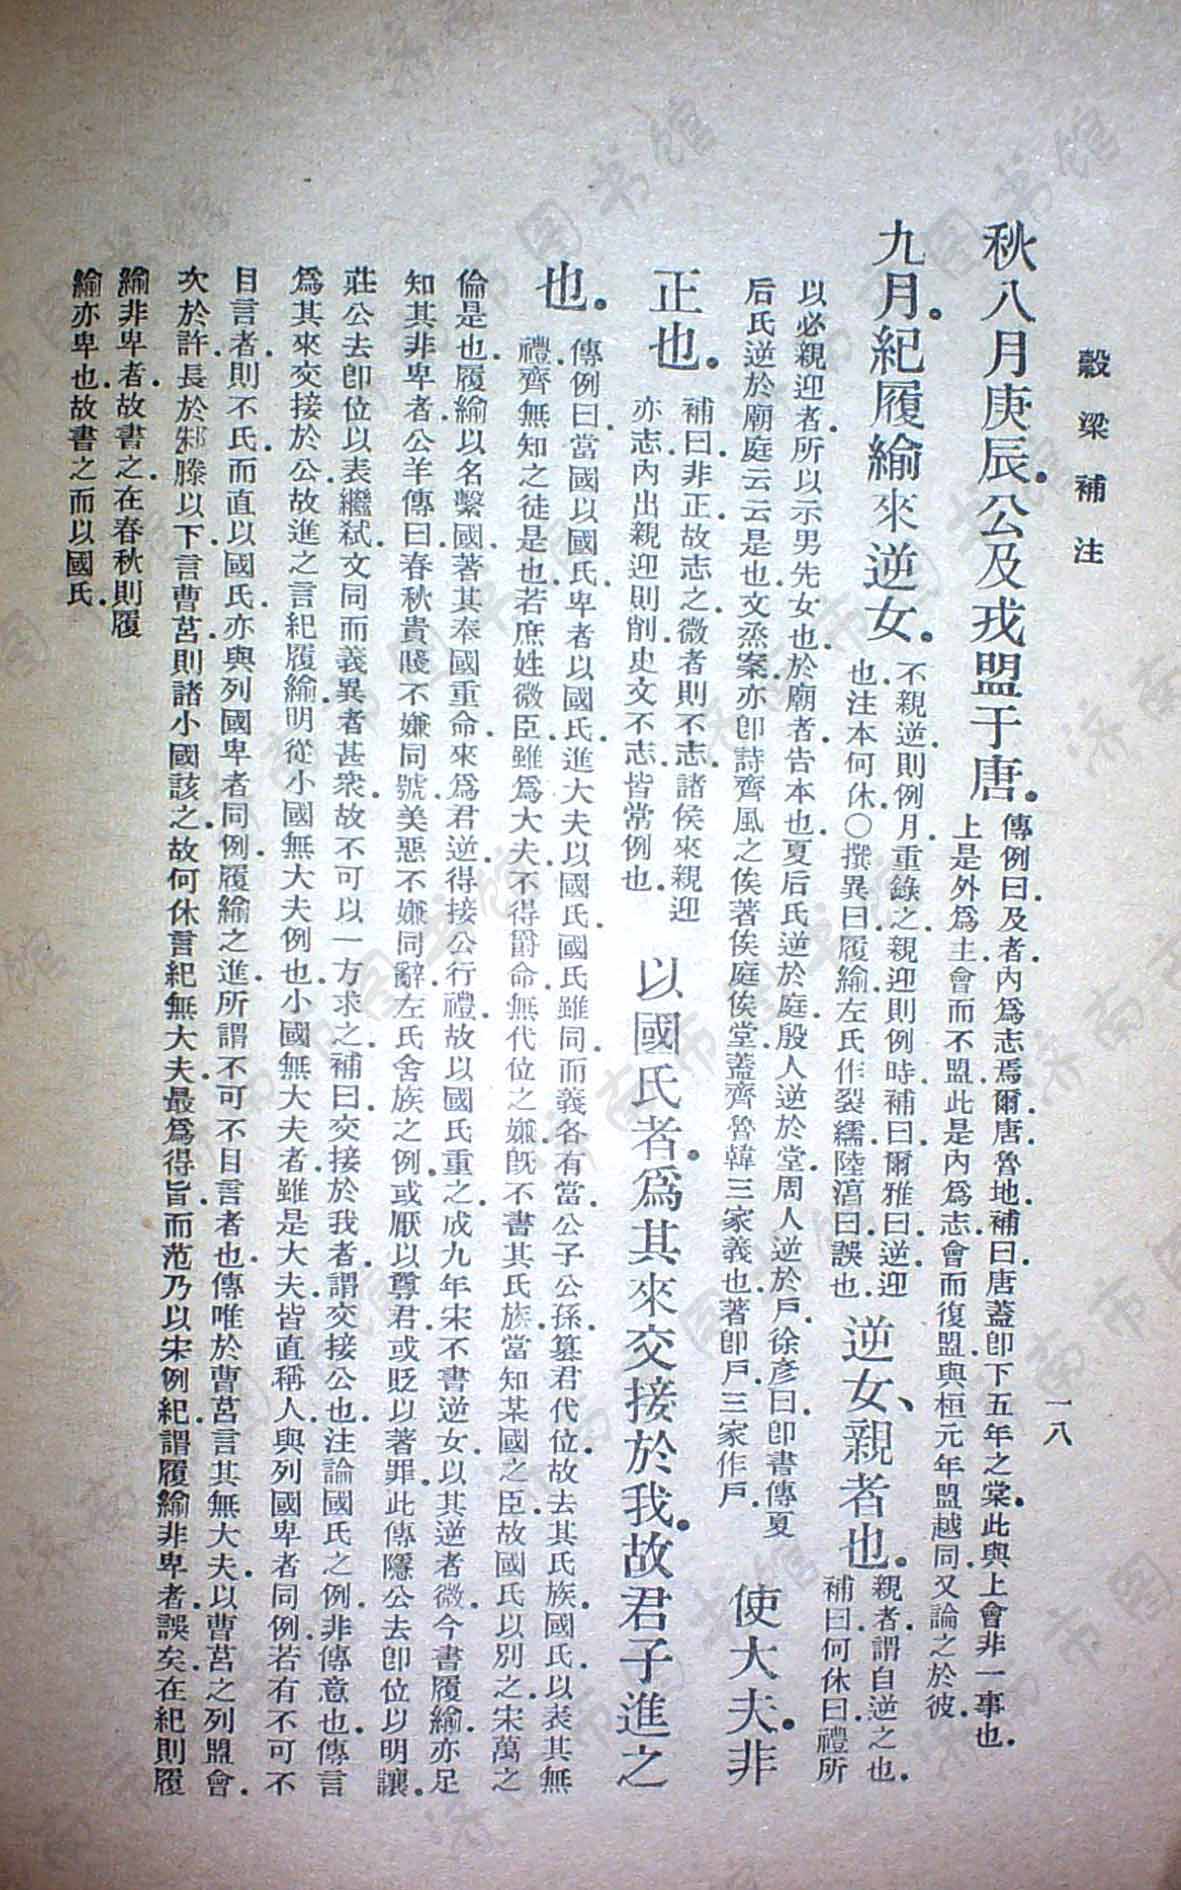 穀梁補注
一八
秋八月庚辰。公及戎盟于唐。
傳例曰。及者。內爲志焉爾。唐。魯地。補曰。唐蓋卽下五年之棠。此與上會非一事也。
上是外爲主。會而不盟。此是內爲志。會而復盟。與桓元年盟越同。又論之於彼。
九月。紀履緰來逆女。
不親逆則例月。重錄之。親迎則例時。補曰。爾雅曰。逆。迎
也。注本何休。○撰異曰。履緰。左氏作裂繻。陸湻曰。誤也。
逆女、親者也。
親者。謂自逆之也。
補曰。何休曰。禮所
以必親迎者。所以示男先女也。於廟者。告本也。夏后氏逆於庭。殷人逆於堂。周人逆於戶。徐彥曰。卽書傳夏
后氏逆於廟庭云云是也。文烝案。亦卽詩齊風之俟著俟庭俟堂。蓋齊魯韓三家義也。著卽戶。三家作戶。
使大夫。非
正也。
補曰。非正。故志之。微者則不志。諸侯來親迎
亦志。內出親迎則削。史文不志。皆常例也。
以國氏者。爲其來交接於我。故君子進之
也。
傳例曰。當國以國氏。卑者以國氏。進大夫以國氏。國氏雖同。而義各有當。公子公孫。篡君代位。故去其氏族。國氏以表其無
禮。齊無知之徒是也。若庶姓微臣。雖爲大夫。不得爵命。無代位之嫌。旣不書其氏族。當知某國之臣。故國氏以別之。宋萬之
倫是也。履緰以名繫國。著其奉國重命。來爲君逆。得接公行禮。故以國氏重之。成九年宋不書逆女。以其逆者微。今書履緰。亦足
知其非卑者。公羊傳曰。春秋貴賤不嫌同號。美惡不嫌同辭。左氏舍族之例。或厭以尊君。或貶以著罪。此傳隱公去卽位以明讓。
莊公去卽位以表繼弒。文同而義異者甚衆。故不可以一方求之。補曰。交接於我者。謂交接公也。注論國氏之例。非傳意也。傳言
爲其來交接於公。故進之言紀履緰。明從小國無大夫例也。小國無大夫者。雖是大夫。皆直稱人。與列國卑者同例。若有不可不
目言者。則不氏而直以國氏。亦與列國卑者同例。履緰之進。所謂不可不目言者也。傳唯於曹莒言其無大夫。以曹莒之列盟會
次於許。長於邾滕以下。言曹莒則諸小國該之。故何休言紀無大夫。最爲得旨。而范乃以宋例紀。謂履緰非卑者。誤矣。在紀則履
緰非卑者。故書之。在春秋則履
緰亦卑也。故書之而以國氏。